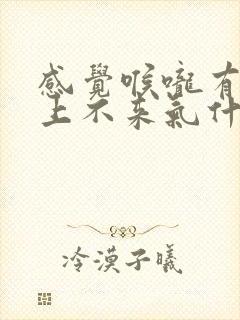 感覺喉嚨有
上不來氣什
冷漠子曦